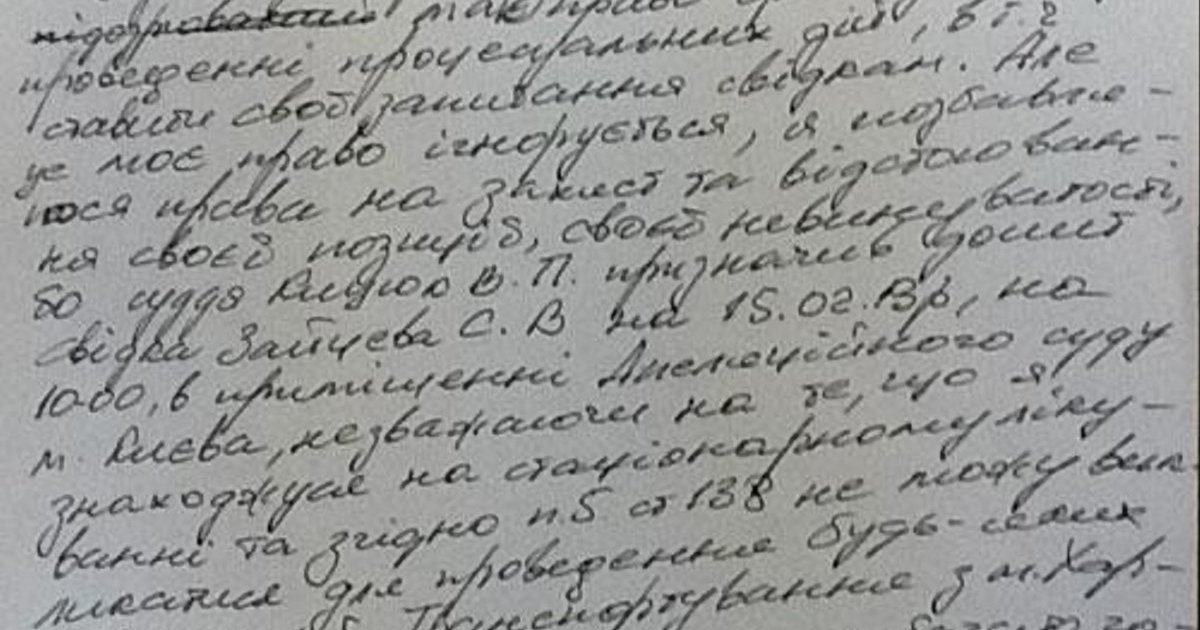 підозрюваний має право
проведенні процесуальних дій, в т.ч
ставити свої запитання свідкам. Але
це моє право ігнорується, я позбавля-
юся права на захист та відстоюван-
ня своєї позиції, своєї невинуватості,
бо суддя Кицюк В. П. призначив допит
свідка Зайцева С. В на 15.02.13р, на
10-00, в приміщенні Апеляційного суду
м. Києва, незважаючи на те, що я
знаходжуся на стаціонарному ліку-
ванні та згідно п.5 ст 138 не можу викли-
катися для проведення будь-яких
Транспортування з м. Хар-